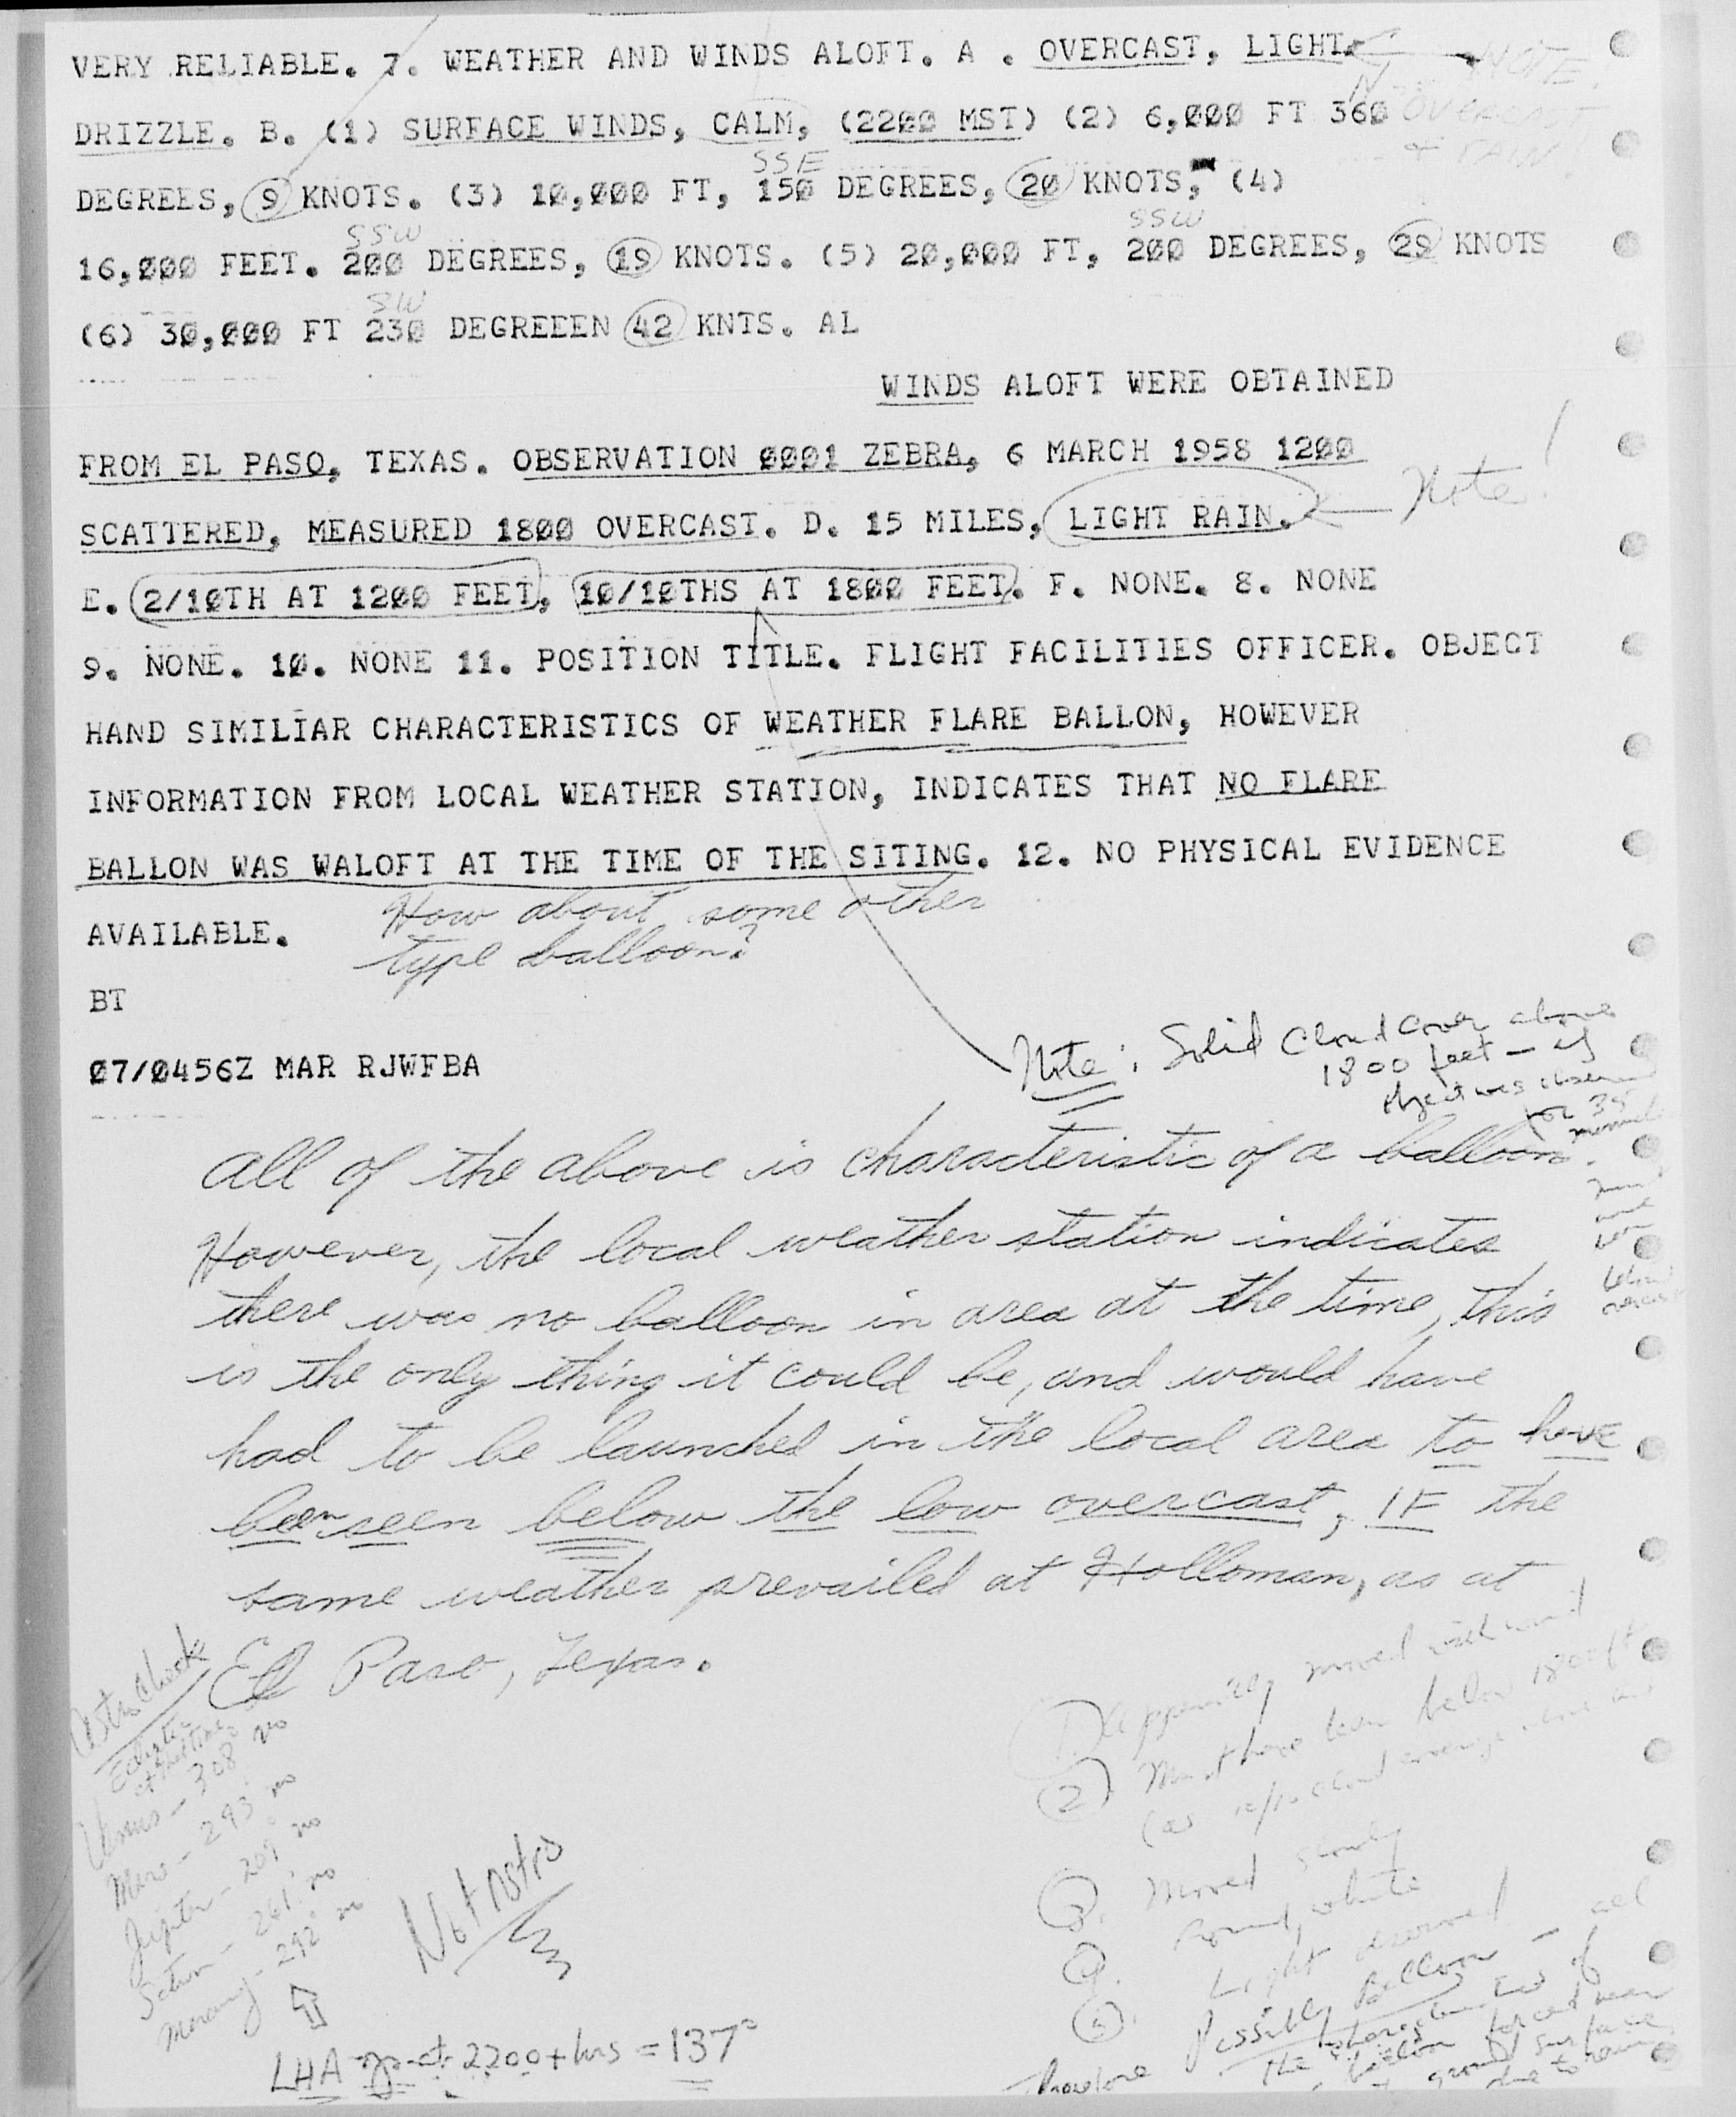 VERY RELIABLE. 7. WEATHER AND WINDS ALOFT. A . OVERCAST, LIGHT
NOTE
OVERCAST
+ RAIN.
DRIZZLE. B. (1) SURFACE WINDS, CALM, (2200 MST) (2) 6,000 FT 360
SSE
DEGREES, 9 KNOTS. (3) 10,000 FT, 150 DEGREES, 20 KNOTS, (4)
SSW SSW
16,000 FEET. 200 DEGREES, 19 KNOTS. (5) 20,000 FT, 200 DEGREES, 29 KNOTS
SW
(6) 30,000 FT 230 DEGREEEN 42 KNTS. AL
WINDS ALOFT WERE OBTAINED
FROM EL PASO, TEXAS. OBSERVATION 0001 ZEBRA, 6 MARCH 1958 1200
SCATTERED, MEASURED 1800 OVERCAST. D. 15 MILES, LIGHT RAIN. Note!
E. 2/10TH AT 1200 FEET, 10/10THS AT 1800 FEET. F. NONE. 8. NONE
9. NONE. 10. NONE 11. POSITION TITLE. FLIGHT FACILITIES OFFICER. OBJECT
HAND SIMILIAR CHARACTERISTICS OF WEATHER FLARE BALLON, HOWEVER
INFORMATION FROM LOCAL WEATHER STATION, INDICATES THAT NO FLARE
BALLON WAS WALOFT AT THE TIME OF THE SITING. 12. NO PHYSICAL EVIDENCE
AVAILABLE.
How about some other
type balloon?
BT
07/0456Z MAR RJWFBA
Note: Solid Cloud Cover above
1800 feet – if
object was observed
for 35
minutes
must
have
been
below
overcast
All of the above is characteristic of a balloon.
However, the local weather station indicates
there was no balloon in area at the time, this
is the only thing it could be, and would have
had to be launched in the local area to have
been seen below the low overcast, IF the
same weather prevailed at Holloman, as at
El Paso, Texas.
Astro Check
Ecliptic
at that time
Venus – 308° no
Mars – 293° no
Jupiter – 209° no
Saturn – 261° no
Mercury – 292° no
Not Astro
LHA at 2200+ hrs = 137°
1. Apparently moved with wind
2. Must have been below 1800 ft
(as cloud coverage
3. Moved slowly
4. Round, white
5. Light observed
Therefore Possibly Balloon – all
the characteristics of
balloon forced near
ground surface
due to rain